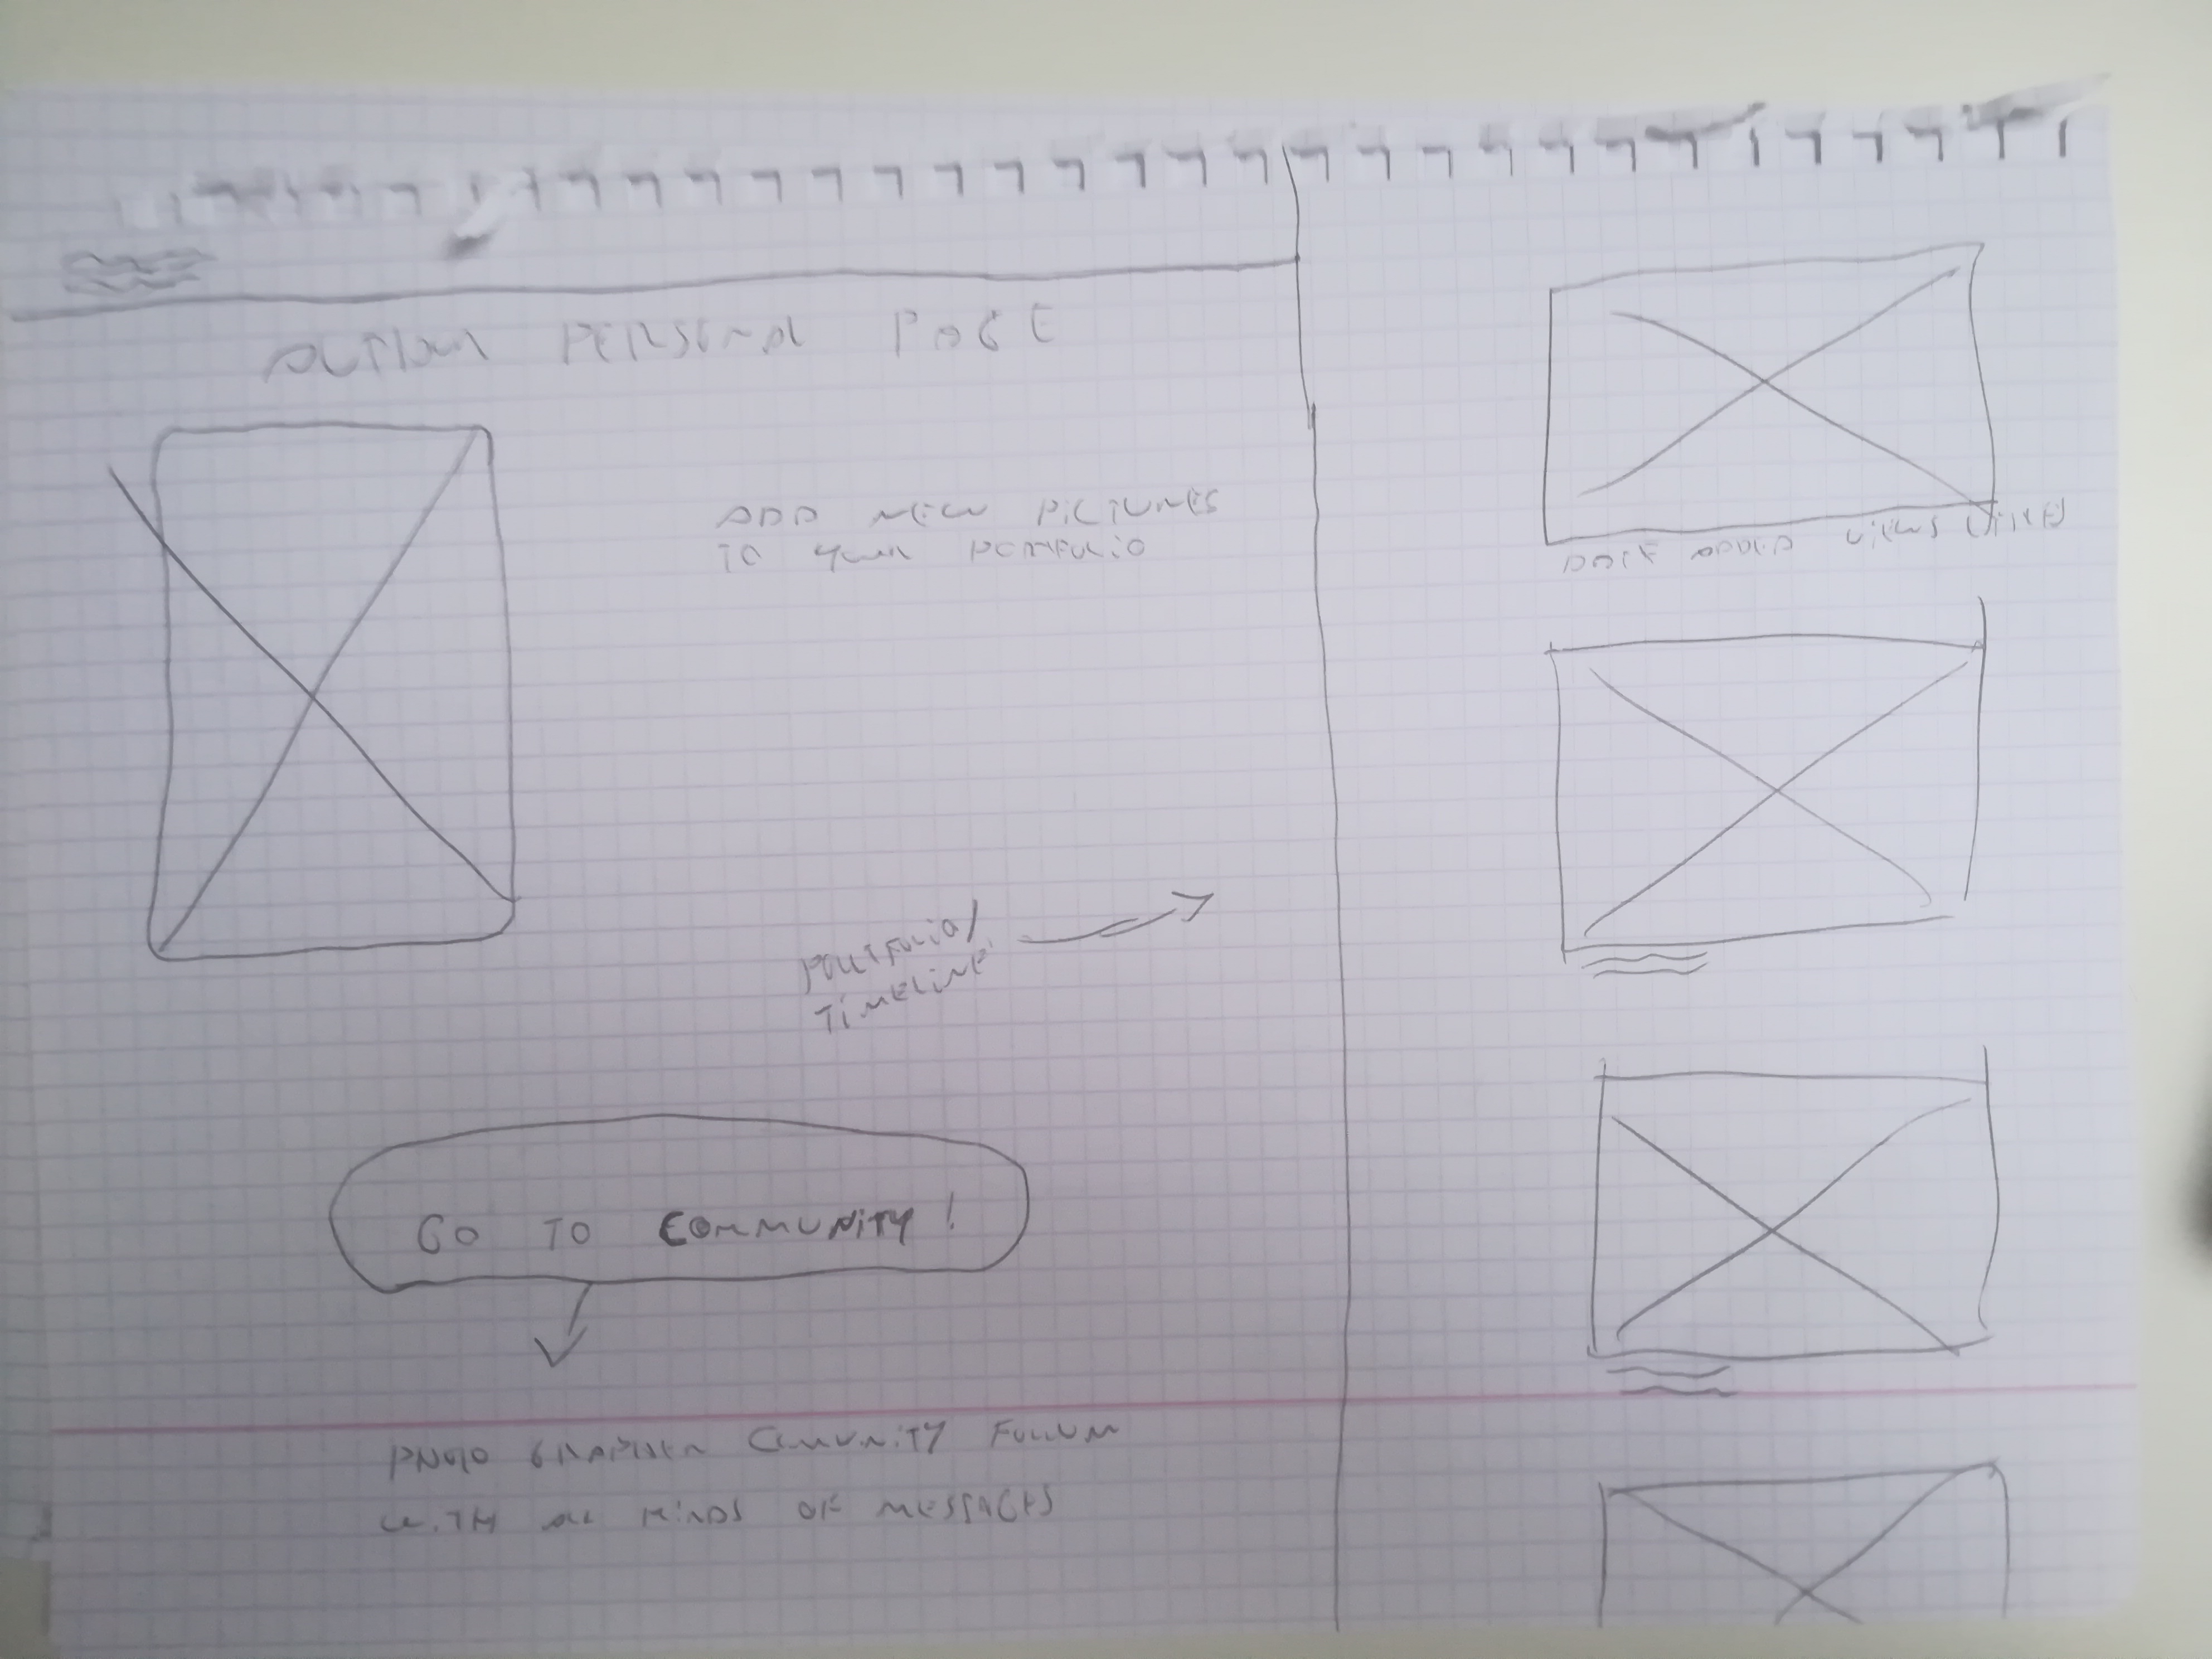 PERSONAL PAGE
ADD NEW PICTURES
TO YOUR PORTFOLIO
PORTFOLIO/
TIMELINE
GO TO COMMUNITY!
PHOTO GRAPHER COMUNITY FORUM
WITH ALL KINDS OF MESSAGES
DATE ADDED VIEWS